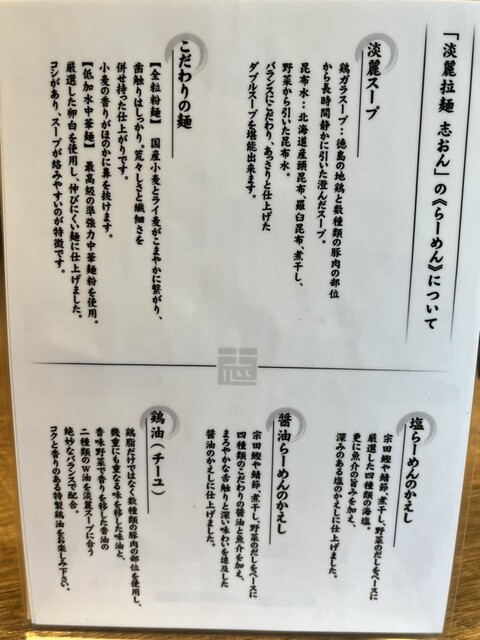 「淡麗拉麺 志おん」の《らーめん》について
淡麗スープ
鶏ガラスープ：徳島の地鶏と数種類の豚肉の部位
から長時間静かに引いた澄んだスープ。
昆布水：北海道産頭昆布、羅臼昆布、煮干し、
野菜から引いた昆布水。
バランスにこだわり、あっさりと仕上げた
ダブルスープを堪能出来ます。
こだわりの麺
【全粒粉麺】 国産小麦とライ麦がこまやかに繋がり、
歯触りはしっかり。荒々しさと繊細さを
併せ持った仕上がりです。
小麦の香りがほのかに鼻を抜けます。
【低加水中華麺】 最高級の準強力中華麺粉を使用。
厳選した卵白を使用し、伸びにくい麺に仕上げました。
コシがあり、スープが絡みやすいのが特徴です。
塩らーめんのかえし
宗田鰹や鯖節、煮干し、野菜のだしをベースに
厳選した四種類の海塩。
更に魚介の旨みを加え、
深みのある塩のかえしに仕上げました。
醤油らーめんのかえし
宗田鰹や鯖節、煮干し、野菜のだしをベースに
四種類のこだわりの醤油と魚介を加え、
まろやかな舌触りと深い味わいを追及した
醤油のかえしに仕上げました。
鶏油（チーユ）
鶏脂だけではなく数種類の豚肉の部位を使用し、
幾重にも重なる味を移した味油と、
香味野菜で香りを移した香油の
二種類のW油を淡麗スープに合う
絶妙なバランスで配合。
コクと香りのある特製鶏油をお楽しみ下さい。